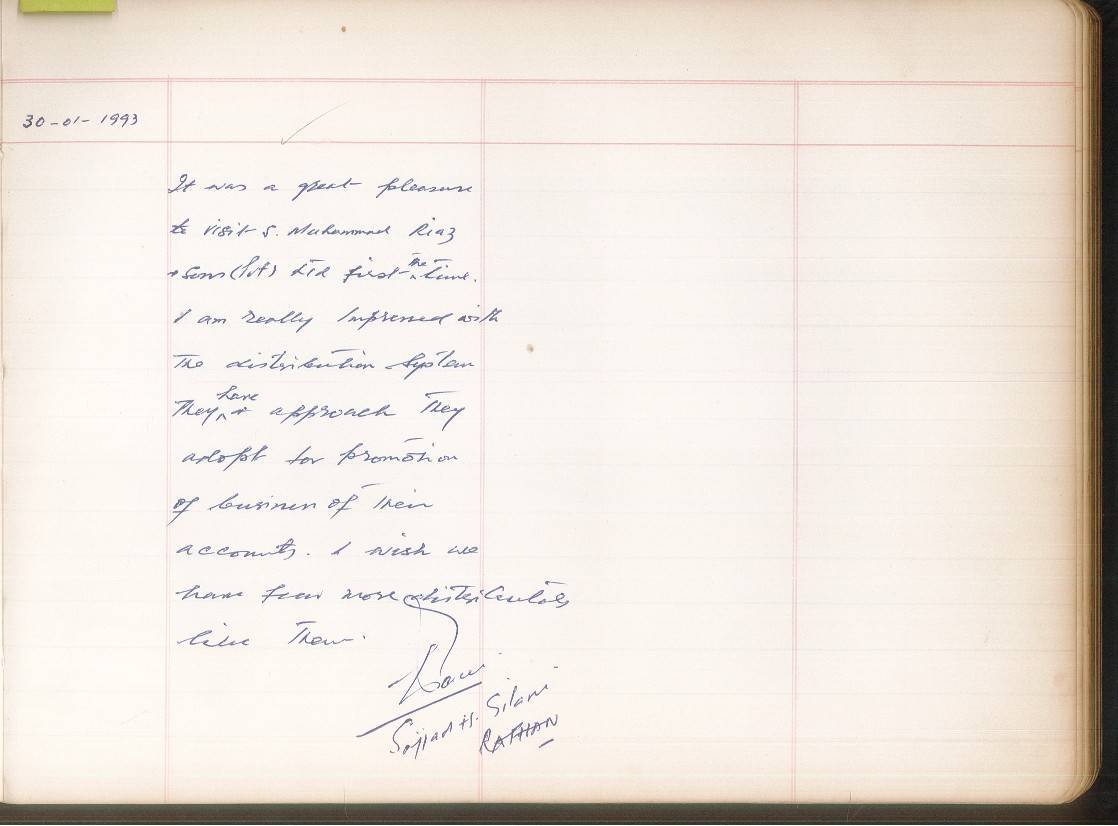 30-01-1993
It was a great pleasure
to visit S. Muhammad Riaz
& Sons (Pvt) Ltd first the time.
I am really Impressed with
The distribution System
They have & approach They
adopt for promotion
of business of Their
accounts. I wish we
have few more distributors
like Them.
Sajjad H. Silani